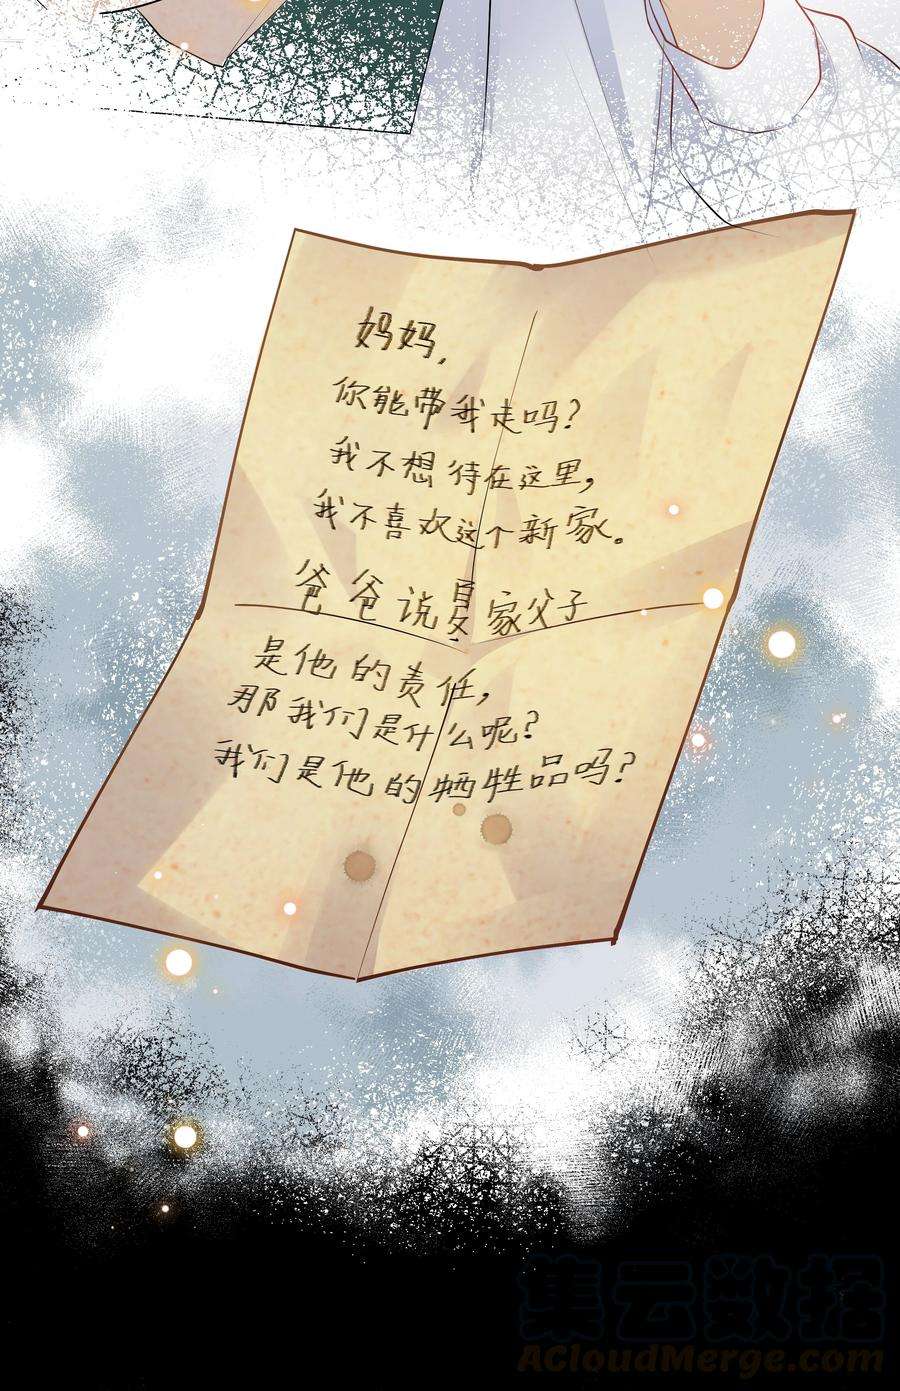 妈妈，
你能带我走吗？
我不想待在这里，
我不喜欢这个新家。
爸爸说夏家父子
是他的责任，
那我们是什么呢？
我们是他的牺牲品吗？
集云数据
AcloudMerge.com